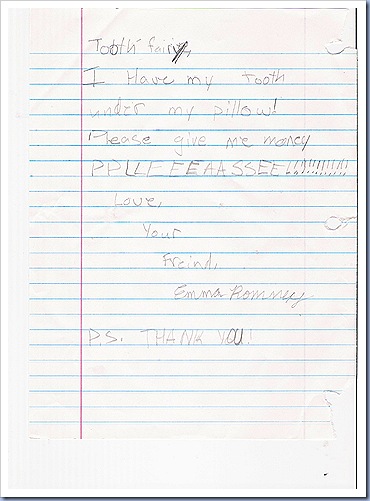 Tooth fairy,
I Have my tooth
under my pillow!
Please give me money
PPLLEEEEAASSEE!!!!!!!!!!!
Love,
Your
Freind,
Emma Romney
P.S. THANK YOU!